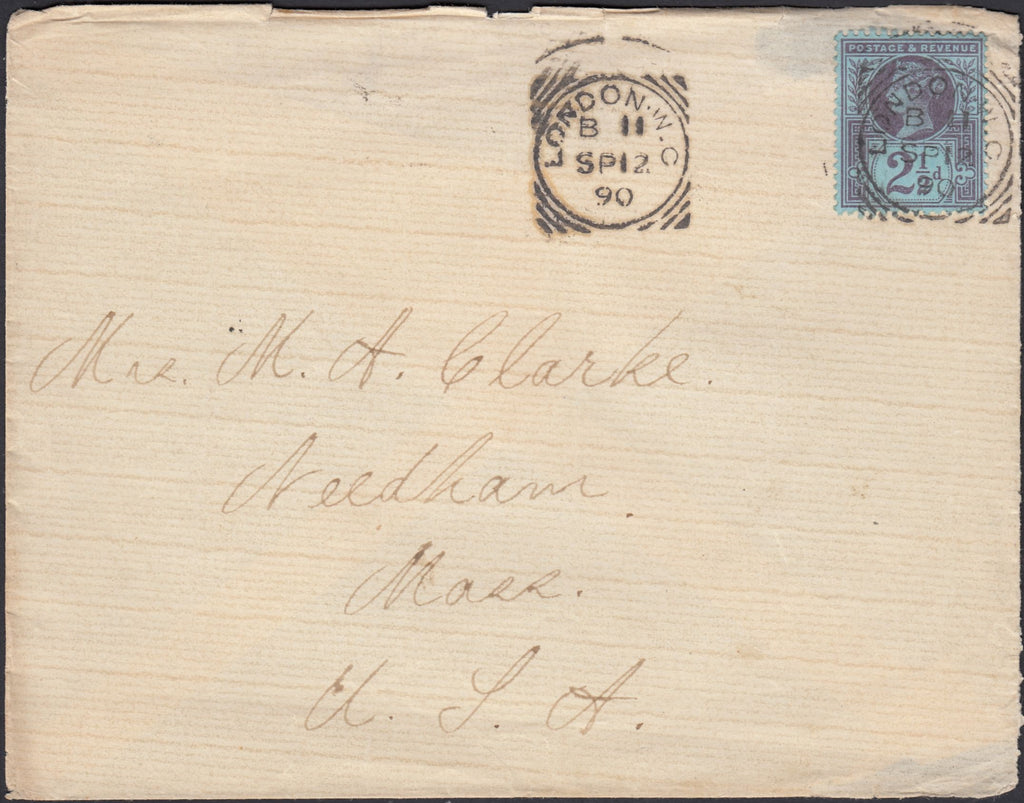 LONDON.W.C
B 11
SP 12
90
POSTAGE & REVENUE
LONDON.W.C
B 11
SP 12
90
2½d
Mrs. M. A. Clarke.
Needham.
Mass.
U. S. A.